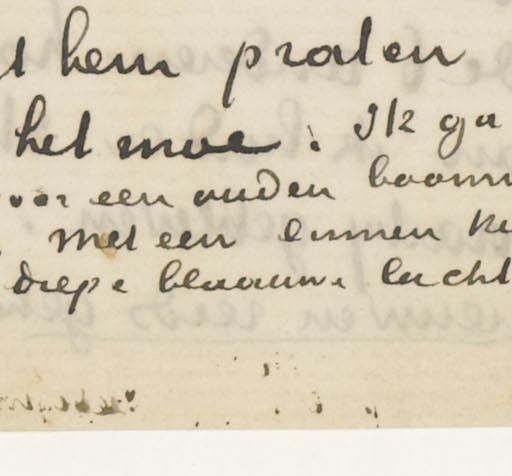 t hem praten
het moe. Ik ga
voor een ouden boom
met een emmer
diepe blaauwe lucht